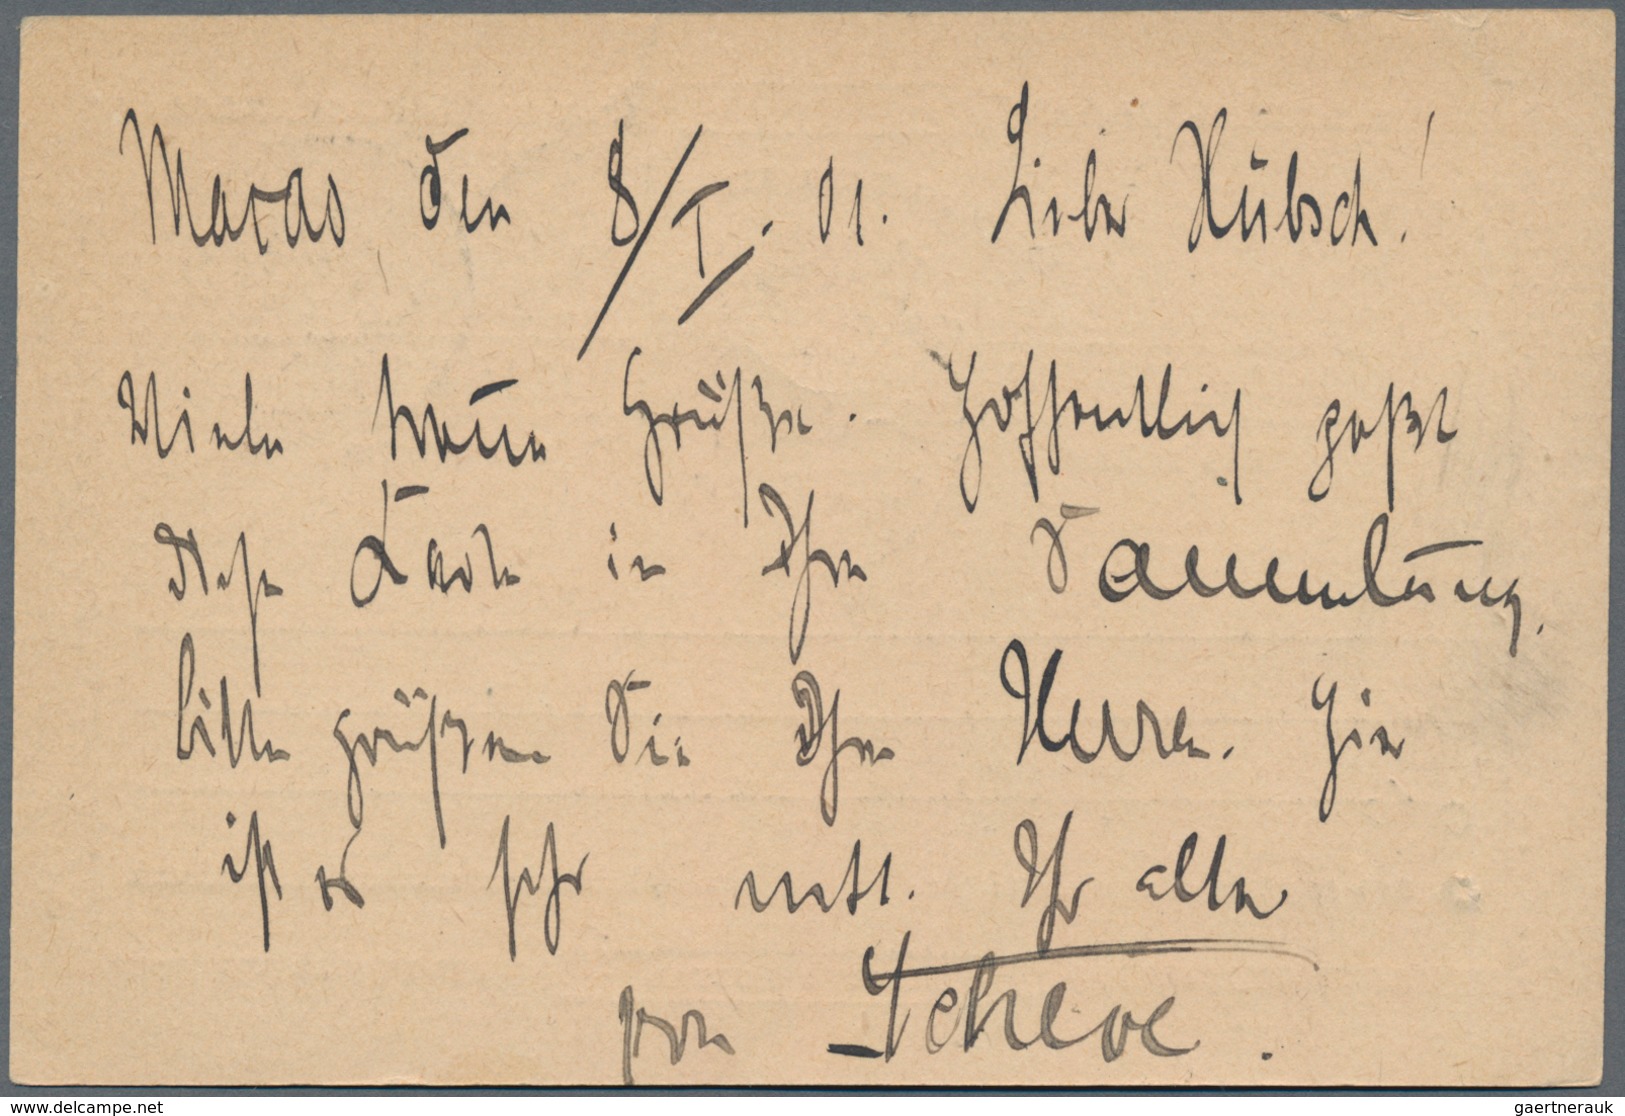 Maras den 8/I. 01. Lieber Hübsch!
Viele Grüße. Hoffentlich paßt
diese Karte in Ihre Sammlung.
bitte grüßen Sie Ihre Herren. Hier
ist es sehr nett. Ihr alter
von Scheve.
www.delcampe.net
gaertnerauk